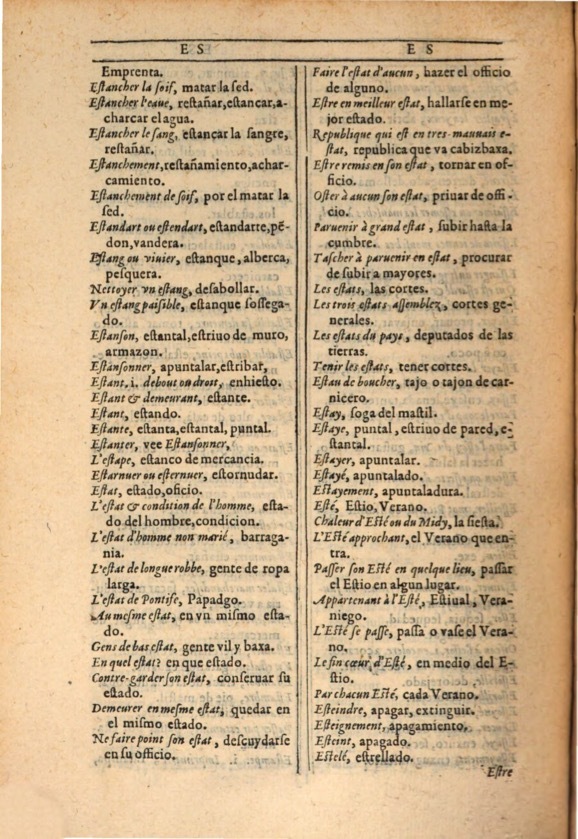 E S
Emprenta.
Estancher la soif, matar la sed.
Estancher l'eaue, restañar, estancar, a-
charcar el agua.
Estancher le sang, estançar la sangre,
restañar.
Estanchement, restañamiento, achar-
camiento.
Estanchement de soif, por el matar la
sed.
Estandart ou estendart, estandarte, pẽ-
don, vandera.
Estang ou viuier, estanque, alberca,
pesquera.
Nettoyer vn estang, desabollar.
Vn estang paisible, estanque sossega-
do.
Estanson, estantal, estriuo de muro,
armazon.
Estansonner, apuntalar, estribar,
Estant, i. debout ou droit, enhiesto.
Estant & demeurant, estante.
Estant, estando.
Estante, estanta, estantal, puntal.
Estanter, vee Estansonner,
L'estape, estanco de mercancia.
Estarnuer ou esternuer, estornudar.
Estat, estado, oficio.
L'estat & condition de l'homme, esta-
do del hombre, condicion.
L'estat d'homme non marié, barraga-
nia.
L'estat de longue robbe, gente de ropa
larga.
L'estat de Pontife, Papadgo.
Au mesme estat, en vn mismo esta-
do.
Gens de bas estat, gente vil y baxa.
En quel estat? en que estado.
Contre-garder son estat, conseruar su
estado.
Demeurer en mesme estat, quedar en
el mismo estado.
Ne faire point son estat, descuydarse
en su officio.
E S
Faire l'estat d'aucun, hazer el officio
de alguno.
Estre en meilleur estat, hallarse en me-
jor estado.
Republique qui est en tres-mauuais e-
stat, republica que va cabizbaxa.
Estre remis en son estat, tornar en of-
ficio.
Oster à aucun son estat, priuar de offi-
cio.
Paruenir à grand estat, subir hasta la
cumbre.
Tascher à paruenir en estat, procurar
de subir a mayores.
Les estats, las cortes.
Les trois estats assemblez, cortes ge-
nerales.
Les estats du pays, deputados de las
tierras.
Tenir les estats, tener cortes.
Estau de boucher, tajo o tajon de car-
nicero.
Estay, soga del mastil.
Estaye, puntal, estriuo de pared, e-
stantal.
Estayer, apuntalar.
Estayé, apuntalado.
Estayement, apuntaladura.
Esté, Estio, Verano.
Chaleur d'Esté ou du Midy, la siesta.
L'Esté approchant, el Verano que en-
tra.
Passer son Esté en quelque lieu, passar
el Estio en algun lugar.
Appartenant à l'Esté, Estiual, Vera-
niego.
L'Esté se passe, passa o vase el Vera-
no.
Le fin cœur d'Esté, en medio del E-
stio.
Par chacun Esté, cada Verano.
Esteindre, apagar, extinguir.
Esteignement, apagamiento.
Esteint, apagado.
Estelé, estrellado.
Estre